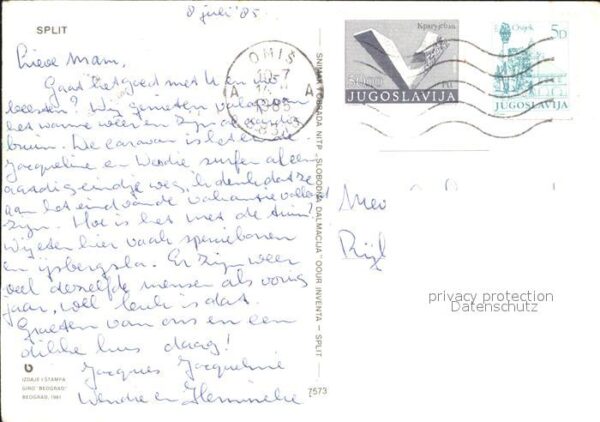 8 juli '85
SPLIT
Lieve Mam,
Gaat het goed met U en de
beesten? Wij genieten volop van
het warme weer en zijn al aardig
bruin. De caravan is
Jacqueline en Wendie surfen al een
aardig eindje weg, ik denk dat ze
aan het eind van de vakantie volleerd
zijn. Hoe is het met de tuin?
Wij eten hier vaak sperciebonen
en ijsbergsla. Er zijn weer
veel dezelfde mensen als vorig
jaar, wel leuk is dat.
Groeten van ons en een
dikke kus daag!
Jacques Jacqueline
Wendie en Hennineke
IZDAJE I ŠTAMPA
GIRO "BEOGRAD"
BEOGRAD, 1981
SNIMAK I OBRADA NITP „SLOBODNA DALMACIJA" OOUR INVENTA — SPLIT —
7573
OMIŠ
A A
JUGOSLAVIJA
5D
JUGOSLAVIJA
Mev
Rijl
privacy protection
Datenschutz